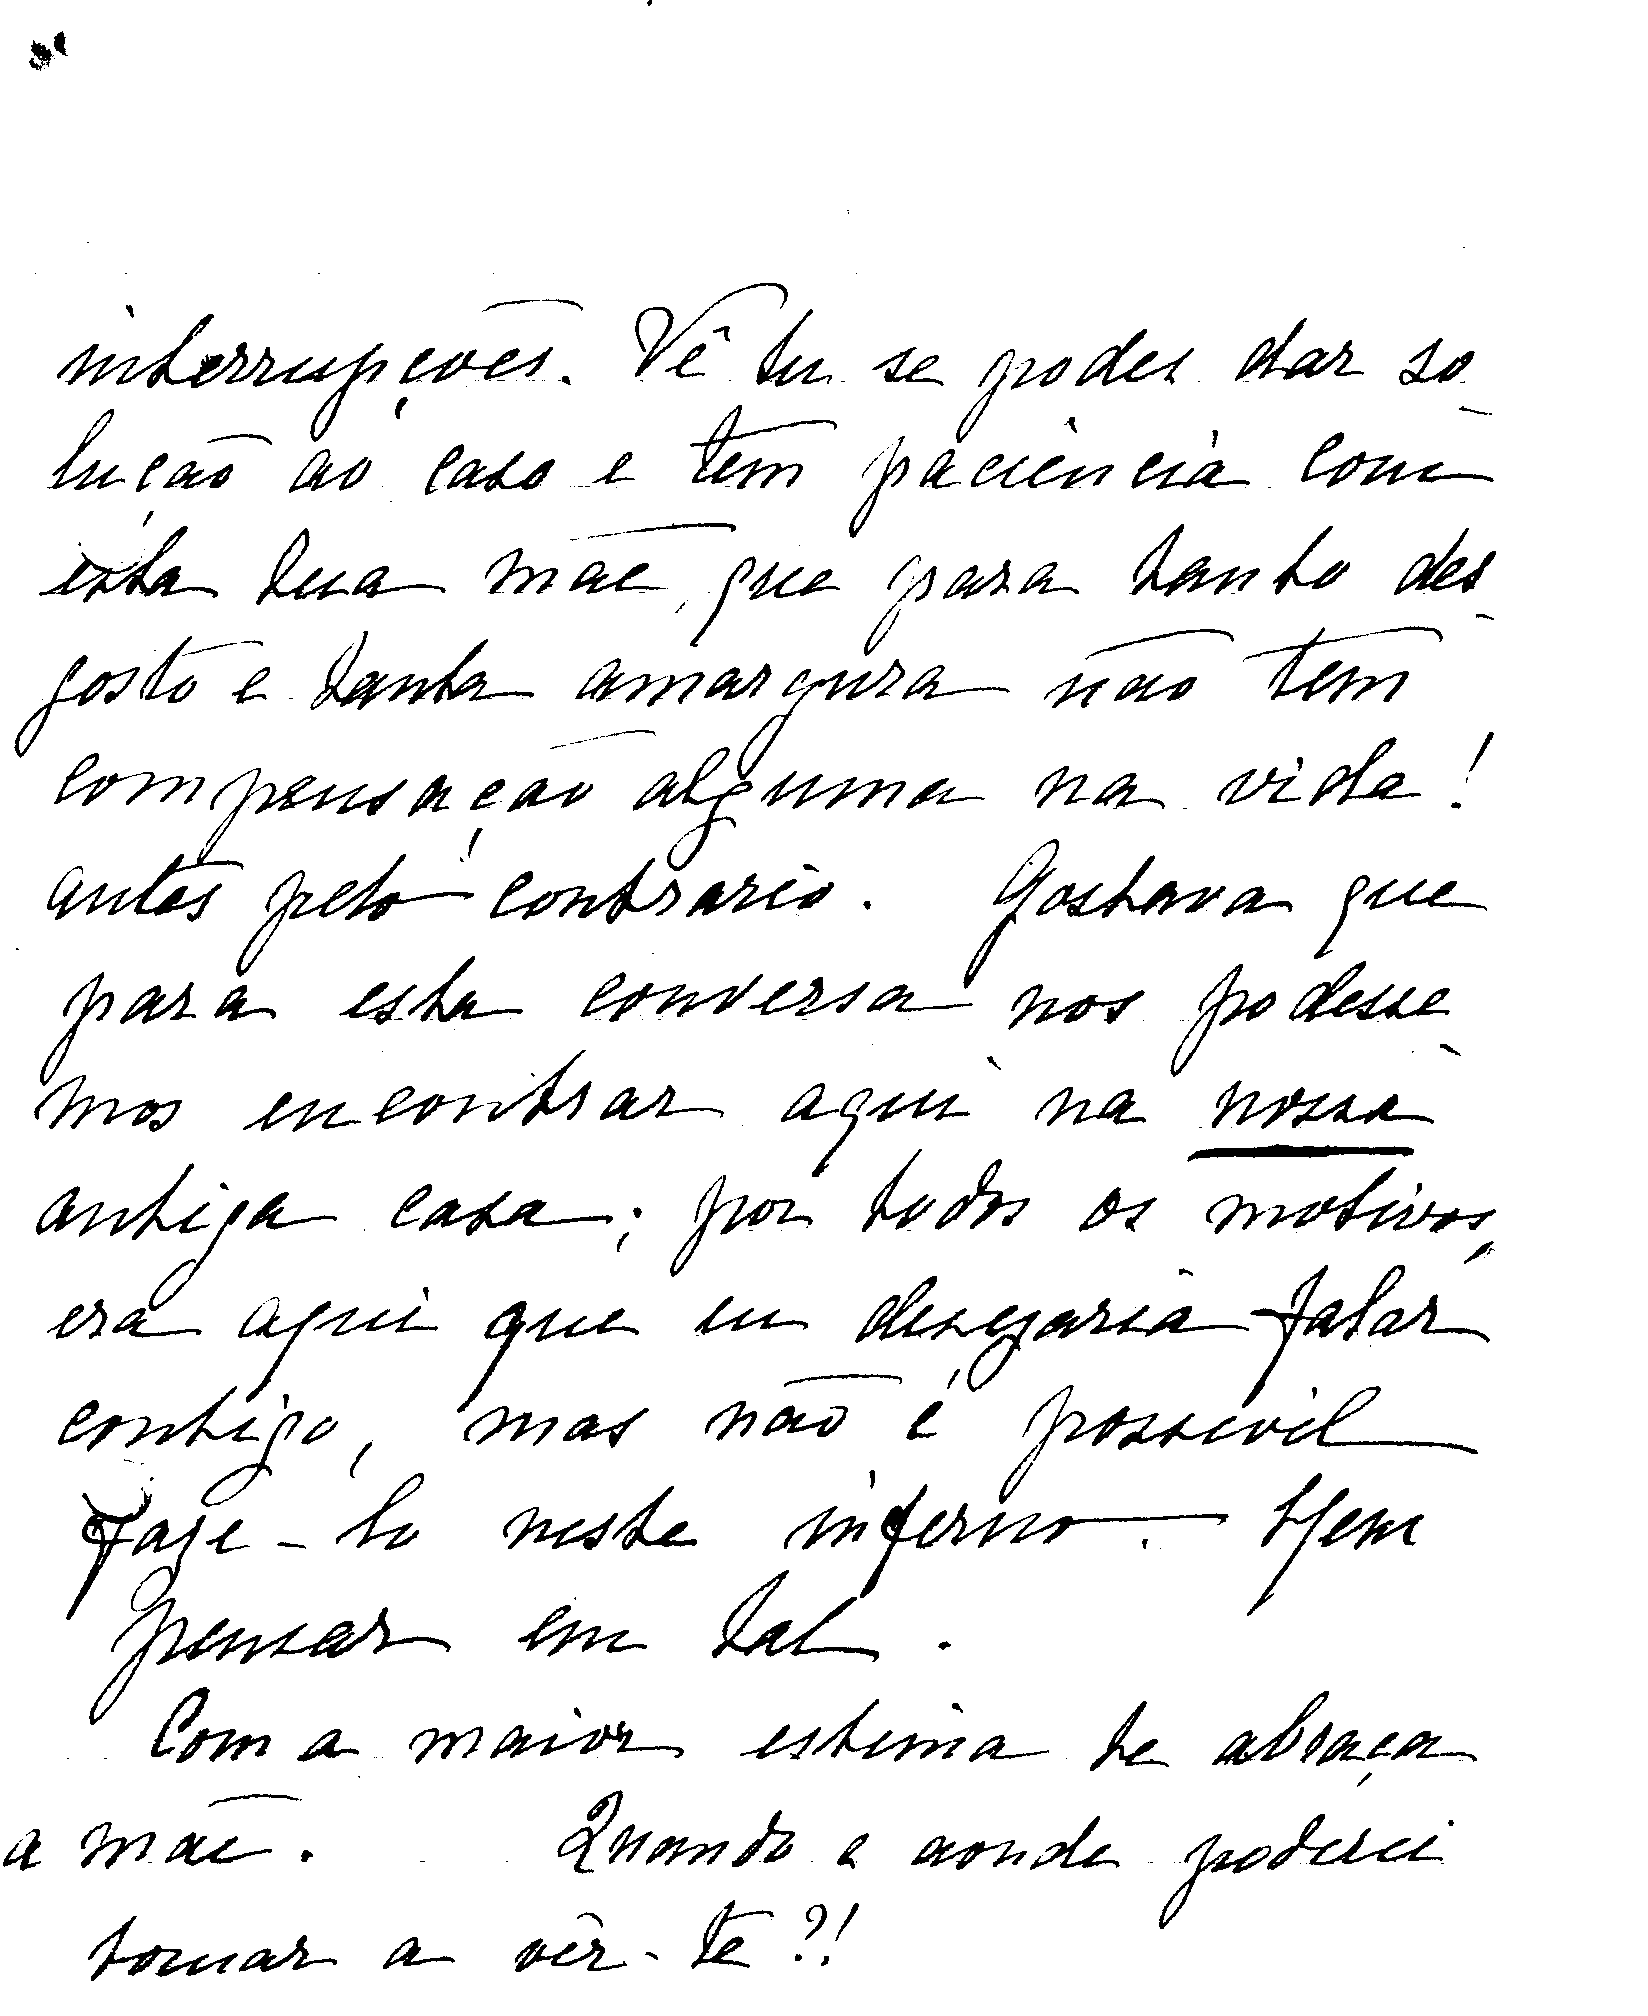 interrupções. Vê tu se podes dar so
lução ao caso e tem paciencia com
esta tua mãe, que para tanto des-
gosto e tanta amargura não tem
compensação alguma na vida!
antes pelo contrario. Gostava que
para esta conversa nos podesse-
mos encontrar aqui na nossa
antiga casa; por todos os motivos,
era aqui que eu desejaria falar
contigo, mas não é possivel
faze-lo neste inferno. Nem
pensar em tal.
Com a maior estima te abraça
a mãe. Quando e aonde poderei
tornar a vêr-te?!